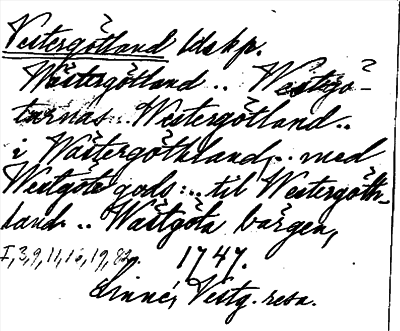 Vestergötland ldskp.
Wästergötland .. Westgö-
tarnas .. Westergötland ..
i Wästergöthland .. med
Westgöta gods .. til Westergöth-
land .. Wästgöta bärgen,
I, 3, 9, 11, 15, 19, 1747.
Linné, Vestg. resa.